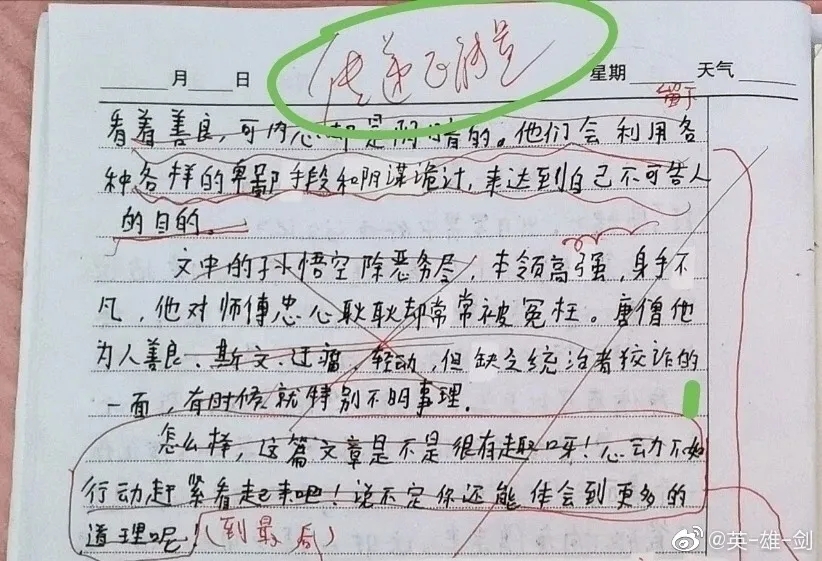 传递正能量
月 日 星期 天气
留下
看着善良，可内心却是阴暗的。他们会利用各
种各样的卑鄙手段和阴谋诡计，来达到自己不可告人
的目的。
文中的孙悟空除恶务尽，本领高强，身手不
凡，他对师傅忠心耿耿却常常被冤枉。唐僧他
为人善良、斯文、迂腐、轻动，但缺乏统治者狡诈的
一面，有时候就特别不明事理。
怎么样，这篇文章是不是很有趣呀！心动不如
行动赶紧看起来吧！说不定你还能体会到更多的
道理呢！（到最后）
@英-雄-剑